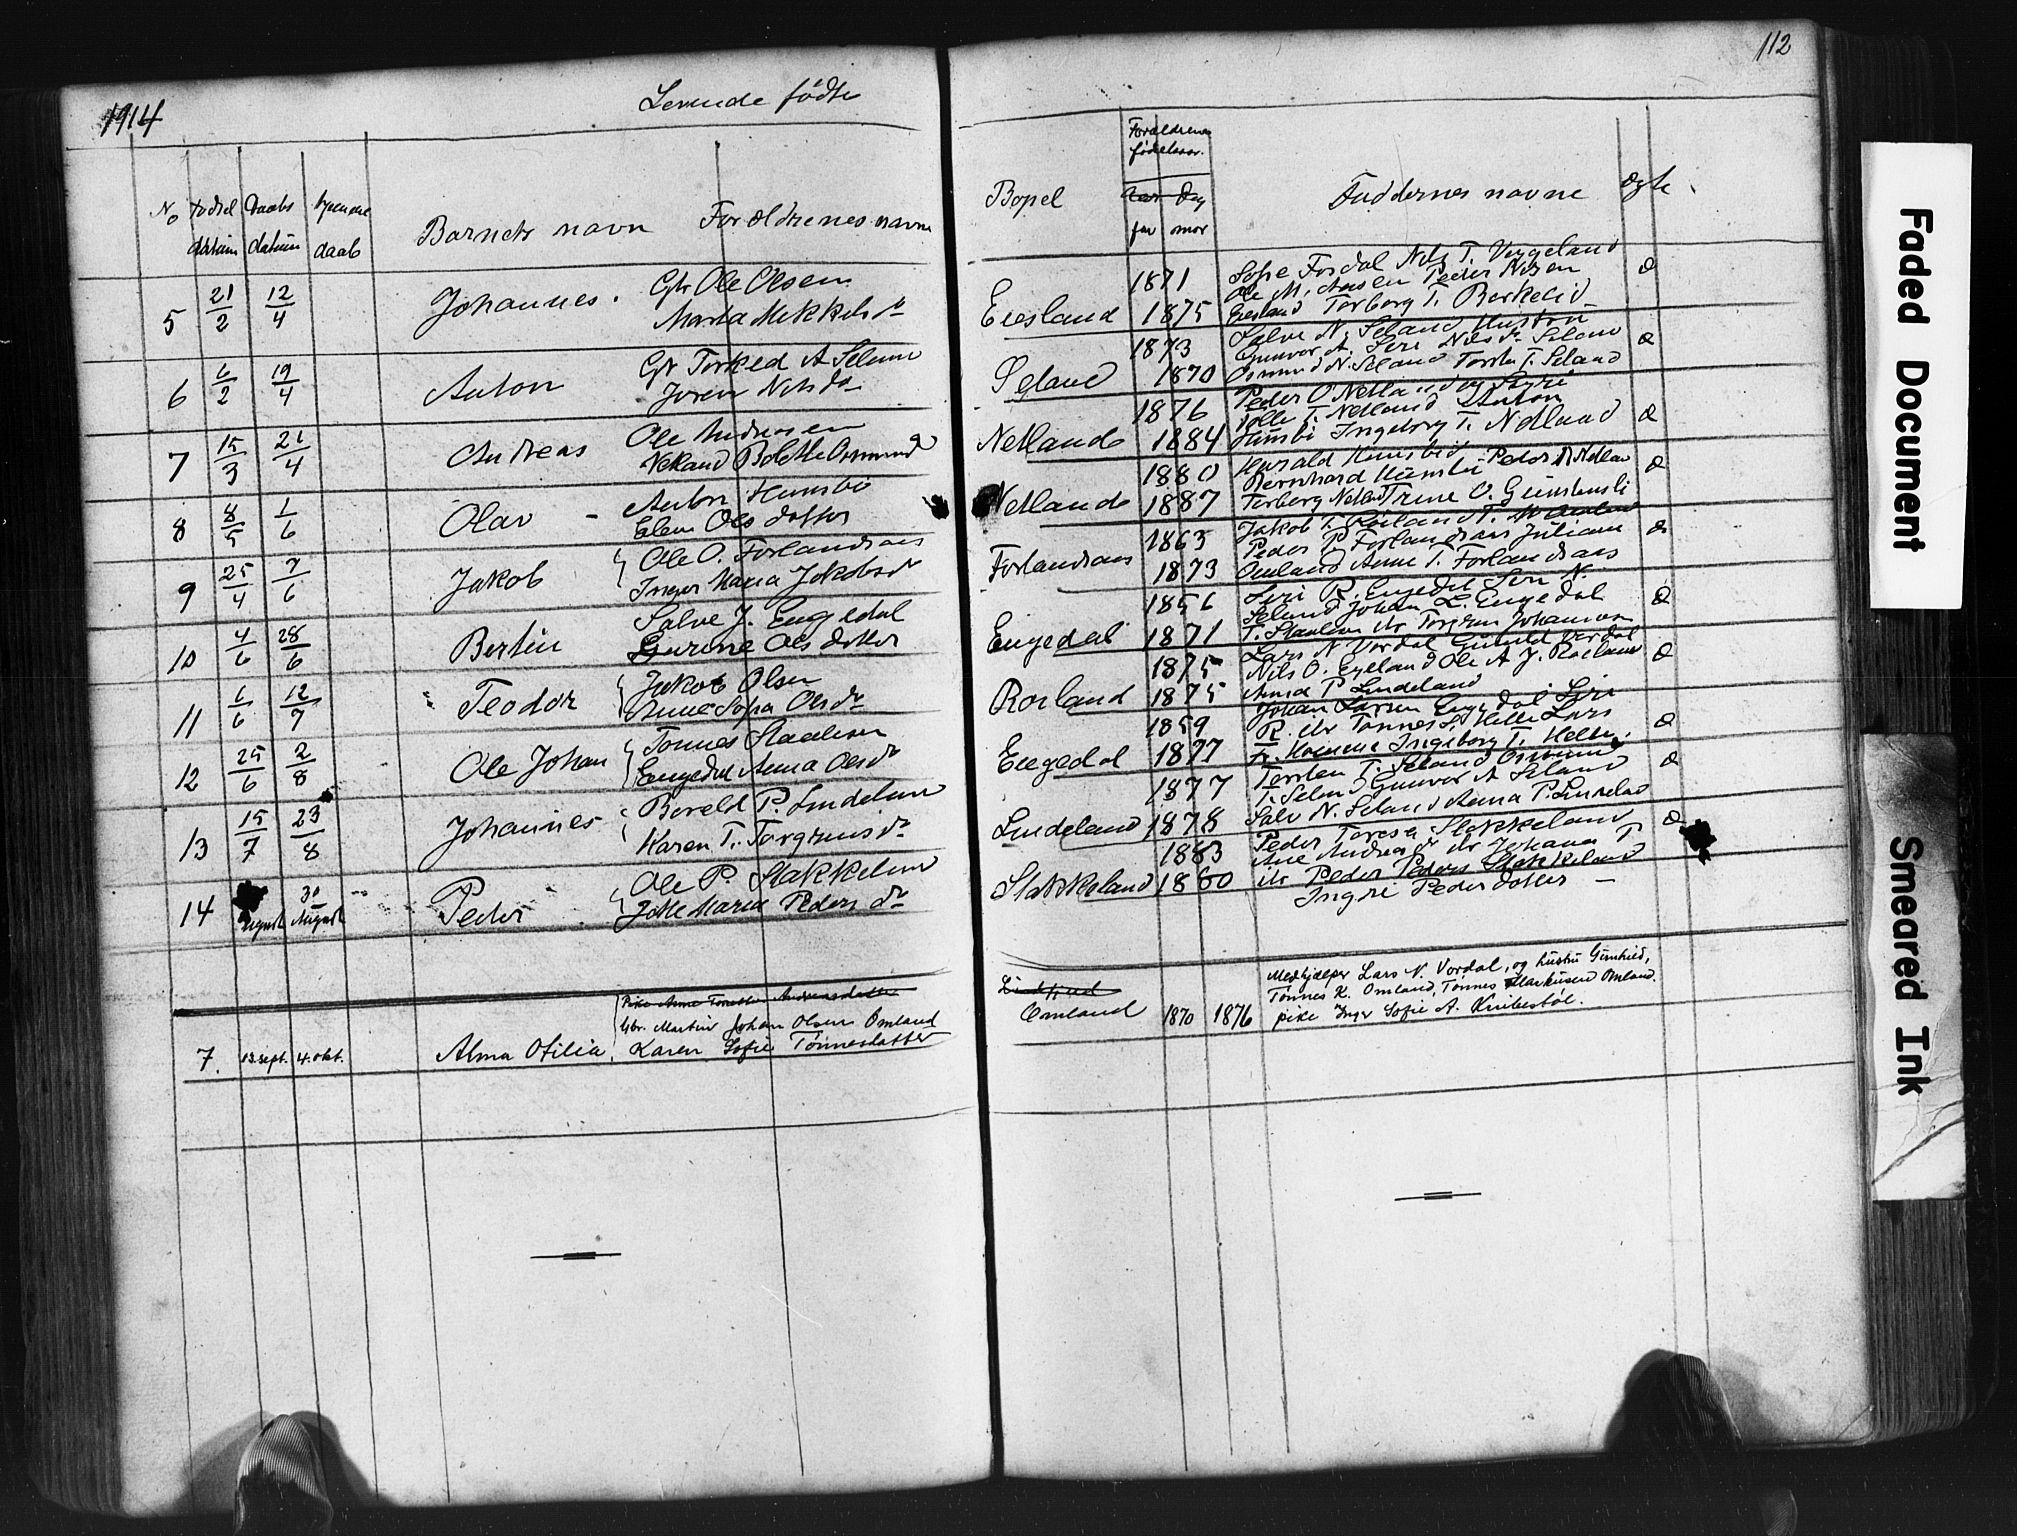 112
1914
Levende fødte
No
Fødsel datum
Daabs datum
hjemme daab
Barnets navn
Forældrenes navne
Bopel
Forældrenes fødelsaar.
far mor
Faddernes navne
Ægte
5 21/2 12/4 Johannes. Gbr Ole Olsen
Marta Mikkelsdr
Eiesland 1871 1875 Sofie Fosdal Nils T. Vegeland
Ole M. Aasen Peder Nilsen
Eiesland Torborg T. Berkelid
6 6/2 19/4 Anton Gbr Torked A Seland
Joren Nilsdr
Seland 1873 1870 Salve N. Seland Hustru
Gunvor A. Siri Nilsdr Seland
Osmund N. Seland Torstein T. Seland
7 15/3 21/4 Andreas Ole Andresen
Netland Bolette Osmundsd
Netland 1876 1884 Peder O Netland og Sigri
Tolle T. Netland Anton
Humsbø Ingeborg T. Netland
8 8/5 1/6 Olav Anton Humsbø
Elen Olsdotter
Netland 1880 1887 Harald Humsbø
Bernhard Humsbø Peder N Netland
Torborg Netland Trine O.
9 25/4 7/6 Jakob Ole O. Forlandsaas
Inger Maria Jakobsdr
Forlandsaas 1863 1873 Jakob T. Röiland
Peder P Forlandsaas Juliane
Omland Anne T. Forlandsaas
10 4/6 28/6 Bertin Salve J. Engedal
Gurine Olsdotter
Engedal 1856 1871 Siri R. Engedal Siri N.
Seland Johan L. Engedal
T. Staalesen Torgrim Johansen
11 6/6 12/7 Teodor Jakob Olsen
Anne Sofia Olsdr
Roiland 1875 1875 Lars N. Vordal Gunild Vordal
Nils O. Egeland Ole A J. Roiland
Anna P Lindeland
12 25/6 2/8 Ole Johan Tonnes Staalesen
Engedal Anna Olsdr
Engedal 1859 1877 Johan Larsen Engedal Siri
R. Tonnes L Helle Lars
Ingeborg T. Helle
13 15/7 23/8 Johannes Bereld P. Lindeland
Karen T. Torgrimsdr
Lindeland 1877 1878 Torsten T. Seland Osmund
T. Seland Gunvor A Seland
Salve N. Seland Anna P. Lindeland
14 August 30 August Peder Ole P. Stakkeland
Maria Pedersdr
Stakkeland 1883 1880 Peder Stakkeland
Ane Andreasdr Johanna P
Peder Peders Stakkeland
Ingri Pedersdotter
7. 13. sept. 4. okt. Alma Otilia. Gbr. Martin Johan Olsen Omland
Karen Sofie Tønnesdatter
Omland 1870 1876 Medhjælper Lars N. Vordal, og hustru Gunhild,
Tønnes K. Omland, Tønnes Markusen Omland.
pike Inger Sofie A. Knibestöl.
Faded Document
Smeared Ink